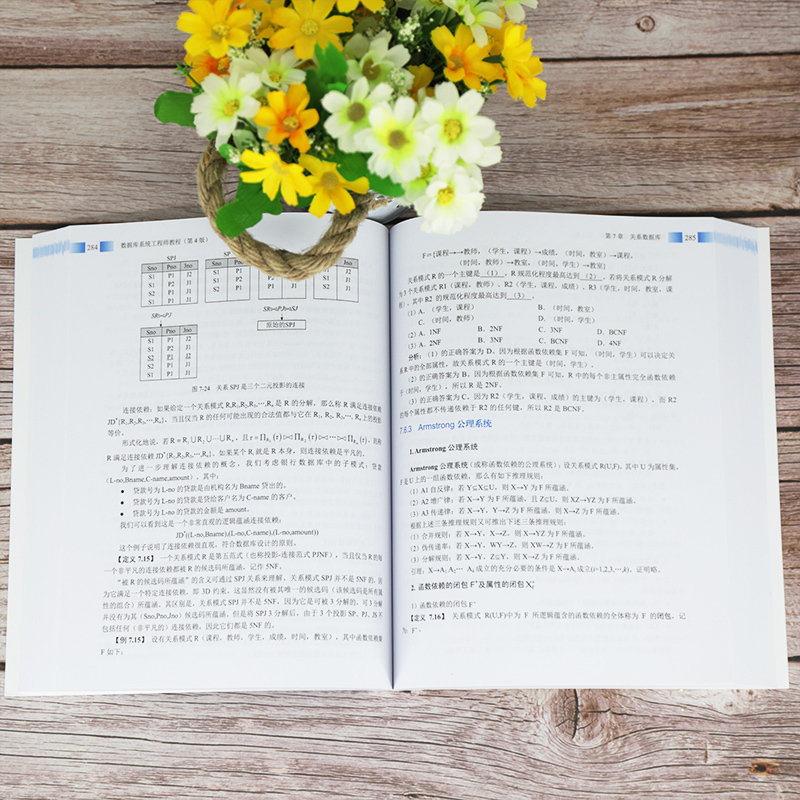 284 数据库系统工程师教程（第4版）
SPJ
SP
Sno Pno Jno
S1 P1 J2
S1 P2 J1
S2 P1 J1
S1 P1 J1
Sno Pno
S1 P1
S1 P2
S2 P1
Jno
P1 J2
P2 J1
P1 J1
Jno
J2
S1 J1
S2 J1
SR⋈PJ
SR⋈PJ⋈SJ
原始的SPJ
Sno Pno Jno
S1 P1 J2
S1 P2 J1
S2 P1 J2
S2 P1 J1
S1 P1 J1
图 7-24 关系 SPJ 是三个二元投影的连接
连接依赖：如果给定一个关系模式 R,R₁,R₂,R₃,…,Rₙ 是 R 的分解，那么称 R 满足连接依赖
JD*{R₁,R₂,R₃,…,Rₙ}，当且仅当 R 的任何可能出现的合法值都与它在 R₁, R₂, R₃,…, Rₙ 上的投影
等价。
形式化地说，若 R＝R₁∪R₂∪…∪Rₙ，且 r＝∏R₁(r)▷◁∏R₂(r)▷◁…▷◁∏Rₙ(r)，则称
R 满足连接依赖 JD*{R₁,R₂,R₃,…,Rₙ}。如果某个 Rᵢ 就是 R 本身，则连接依赖是平凡的。
为了进一步理解连接依赖的概念，我们考虑银行数据库中的子模式：贷款
(L-no,Bname,C-name,amount)，其中：
● 贷款号为 L-no 的贷款是由机构名为 Bname 贷出的。
● 贷款号为 L-no 的贷款是贷给客户名为 C-name 的客户。
● 贷款号为 L-no 的贷款的金额是 amount。
我们可以看到这是一个非常直观的逻辑蕴涵连接依赖：
JD*((L-no,Bname),(L-no,C-name),(L-no,amount))
这个例子说明了连接依赖很直观，符合数据库设计的原则。
【定义 7.15】 一个关系模式 R 是第五范式（也称投影-连接范式 PJNF），当且仅当 R 的每
一个非平凡的连接依赖都被 R 的候选码所蕴涵，记作 5NF。
“被 R 的候选码所蕴涵”的含义可通过 SPJ 关系来理解。关系模式 SPJ 并不是 5NF 的，因
为它满足一个特定连接依赖，即 3D 约束。这显然没有被其唯一的候选码（该候选码是所有属
性的组合）所蕴涵。其区别是，关系模式 SPJ 并不是 5NF，因为它是可被 3 分解的，可 3 分解
并没有为其 (Sno,Pno,Jno) 候选码所蕴涵。但是将 SPJ 3 分解后，由于 3 个投影 SP、PJ、JS 不
包括任何（非平凡的）连接依赖，因此它们都是 5NF 的。
【例 7.15】 设有关系模式 R（课程，教师，学生，成绩，时间，教室），其中函数依赖集
F 如下：
第 7 章 关系数据库 285
F={课程→→教师，（学生，课程）→成绩，（时间，教室）→课程，
（时间，教师）→教室，（时间，学生）→教室}
关系模式 R 的一个主键是 （1） ，R 规范化程度最高达到 （2） 。若将关系模式 R 分解
为 3 个关系模式 R1（课程，教师）、R2（学生，课程，成绩）、R3（学生，时间，教室，课
程），其中 R2 的规范化程度最高达到 （3） 。
（1）A.（学生，课程） B.（时间，教室）
C.（时间，教师） D.（时间，学生）
（2）A. 1NF B. 2NF C. 3NF D. BCNF
（3）A. 2NF B. 3NF C. BCNF D. 4NF
分析：（1）的正确答案为 D。因为根据函数依赖集 F 可知，（时间，学生）可以决定关
系 R 中的全部属性，故关系模式 R 的一个主键是（时间，学生）。
（2）的正确答案为 B。因为根据函数依赖集 F 可知，R 中的每个非主属性完全函数依赖
于（时间，学生），所以 R 是 2NF。
（3）的正确答案为 C。因为 R2（学生，课程，成绩）的主键为（学生，课程），而 R2
的每个属性都不传递依赖于 R2 的任何键，所以 R2 是 BCNF。
7.6.3 Armstrong 公理系统
1. Armstrong 公理系统
Armstrong 公理系统（或称函数依赖的公理系统）：设关系模式 R(U,F)，其中 U 为属性集，
F 是 U 上的一组函数依赖，那么有如下推理规则：
（1）A1 自反律：若 Y⊆X⊆U，则 X→Y 为 F 所蕴涵。
（2）A2 增广律：若 X→Y 为 F 所蕴涵，且 Z⊆U，则 XZ→YZ 为 F 所蕴涵。
（3）A3 传递律：若 X→Y，Y→Z 为 F 所蕴涵，则 X→Z 为 F 所蕴涵。
根据上述三条推理规则又可推出下述三条推理规则：
（1）合并规则：若 X→Y，X→Z，则 X→YZ 为 F 所蕴涵。
（2）伪传递率：若 X→Y，WY→Z，则 XW→Z 为 F 所蕴涵。
（3）分解规则：若 X→Y，Z⊆Y，则 X→Z 为 F 所蕴涵。
引理：X→A₁A₂… Aₖ 成立的充分必要的条件是 X→Aᵢ 成立(i=1,2,3,…,k)。证明略。
2. 函数依赖的闭包 F⁺及属性的闭包 X_F⁺
1）函数依赖的闭包 F⁺
【定义 7.16】 关系模式 R(U,F)中为 F 所逻辑蕴含的函数依赖的全体称为 F 的闭包，记
为：F⁺。